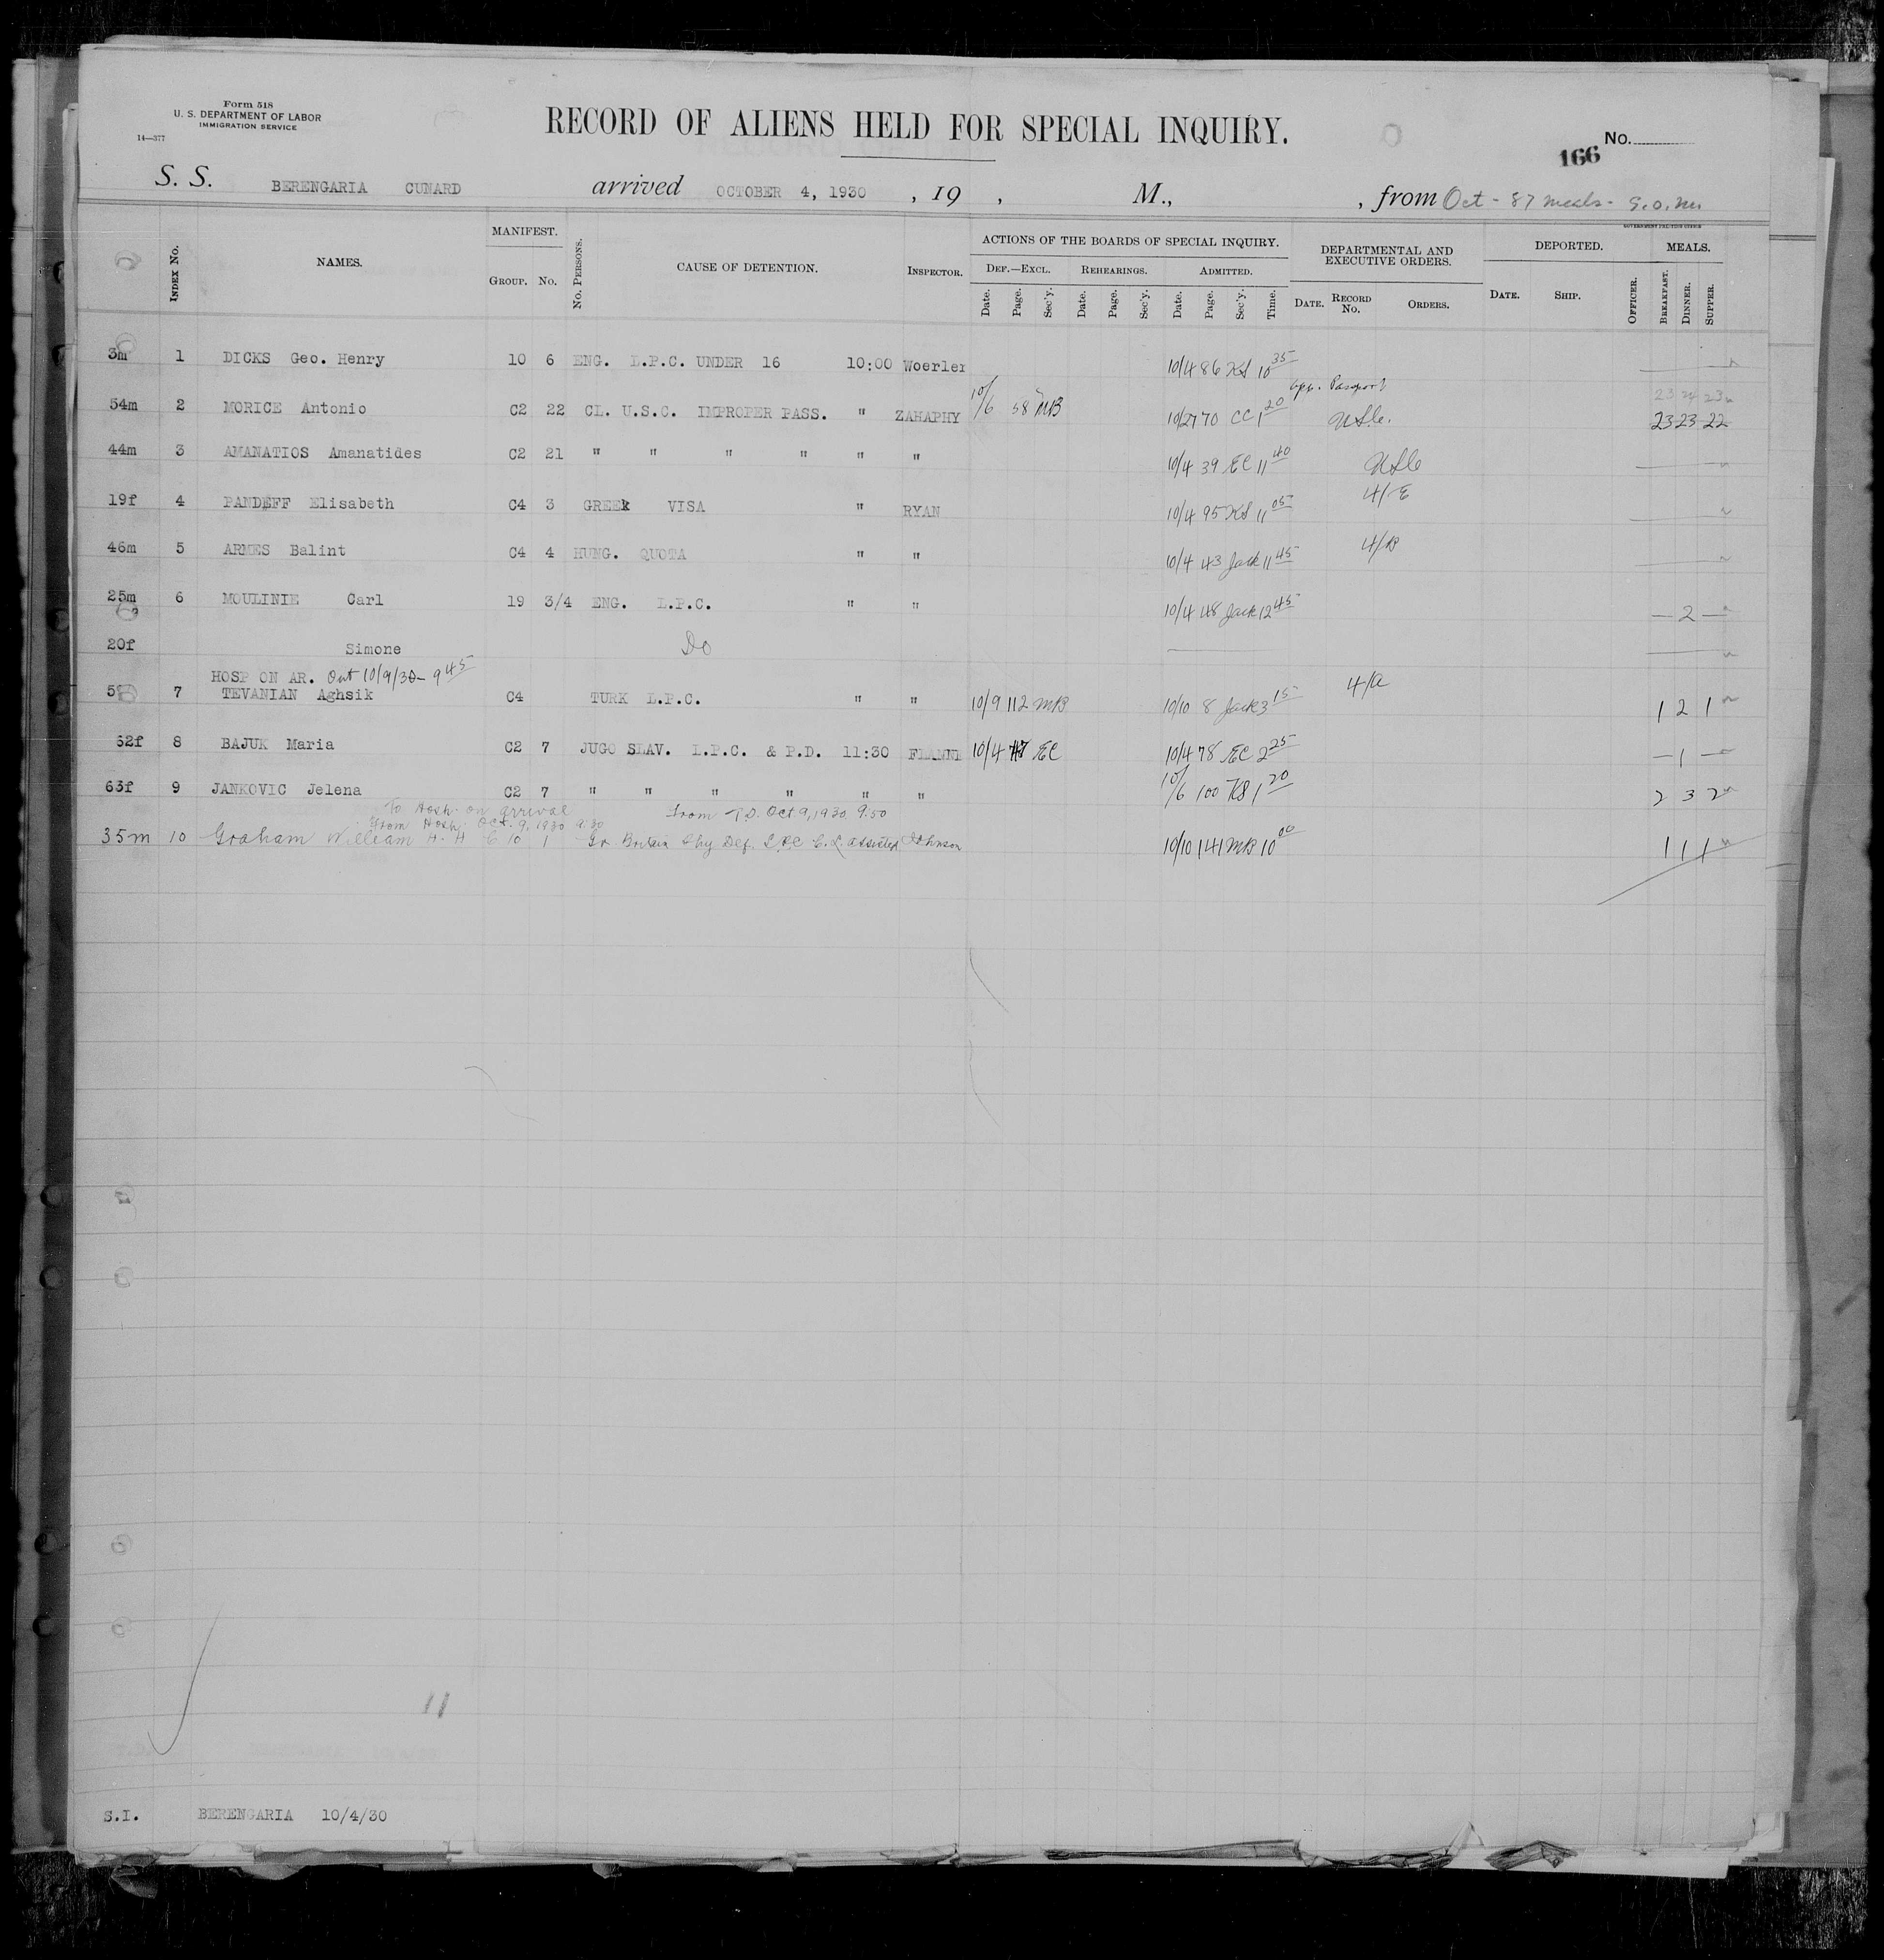 Form 518
U. S. DEPARTMENT OF LABOR
IMMIGRATION SERVICE
14—377
RECORD OF ALIENS HELD FOR SPECIAL INQUIRY.
No.
166
S. S. BERENGARIA CUNARD arrived OCTOBER 4, 1930 , 19 , M., , from Oct - 87 meals - G.O.M.
GOVERNMENT PRINTING OFFICE
INDEX No. NAMES. MANIFEST. GROUP. No. No. PERSONS. CAUSE OF DETENTION. INSPECTOR. ACTIONS OF THE BOARDS OF SPECIAL INQUIRY. DEPARTMENTAL AND EXECUTIVE ORDERS. DEPORTED. MEALS.
DEF.—EXCL. REHEARINGS. ADMITTED.
Date. Page. Sec'y. Date. Page. Sec'y. Date. Page. Sec'y. Time. DATE. RECORD No. ORDERS. DATE. SHIP. OFFICER. BREAKFAST. DINNER. SUPPER.
3m 1 DICKS Geo. Henry 10 6 ENG. L.P.C. UNDER 16 10:00 Woerler 10/4 86 KS 10 35
App. Passport
54m 2 MORICE Antonio C2 22 CL. U.S.C. IMPROPER PASS. " ZAHAPHY 10/6 58 MB 10/27 70 CC 1 20 USC. 23 23 22
23 24 23
44m 3 AMANATIOS Amanatides C2 21 " " " " " " 10/4 39 EC 11 40 USC
19f 4 PANDEFF Elisabeth C4 3 GREEk VISA " RYAN 10/4 95 KS 11 05 4/E
46m 5 ARMES Balint C4 4 HUNG. QUOTA " " 10/4 43 Jack 11 45 4/B
25m 6 MOULINIE Carl 19 3/4 ENG. L.P.C. " " 10/4 48 Jack 12 45 — 2 —
20f Simone Do
HOSP ON AR. Out 10/9/30 - 9 45
7 TEVANIAN Aghsik C4 TURK L.P.C. " " 10/9 112 MB 10/10 8 Jack 3 15 4/a 1 2 1
62f 8 BAJUK Maria C2 7 JUGO SLAV. L.P.C. & P.D. 11:30 10/4 EC 10/4 78 EC 2 25 — 1 —
63f 9 JANKOVIC Jelena C2 7 " " " " " " 10/6 100 KS 1 20 2 3 2
To Hosp. on arrival
From Hosp. Oct. 9, 1930 9:30 From T.D. Oct. 9, 1930 9:50
35m 10 Graham William H. H C 10 1 Gr Britain Phy Def. LPC C.L. assisted Johnson 10/10 141 MB 10 00 1 1 1
11
S.I. BERENGARIA 10/4/30